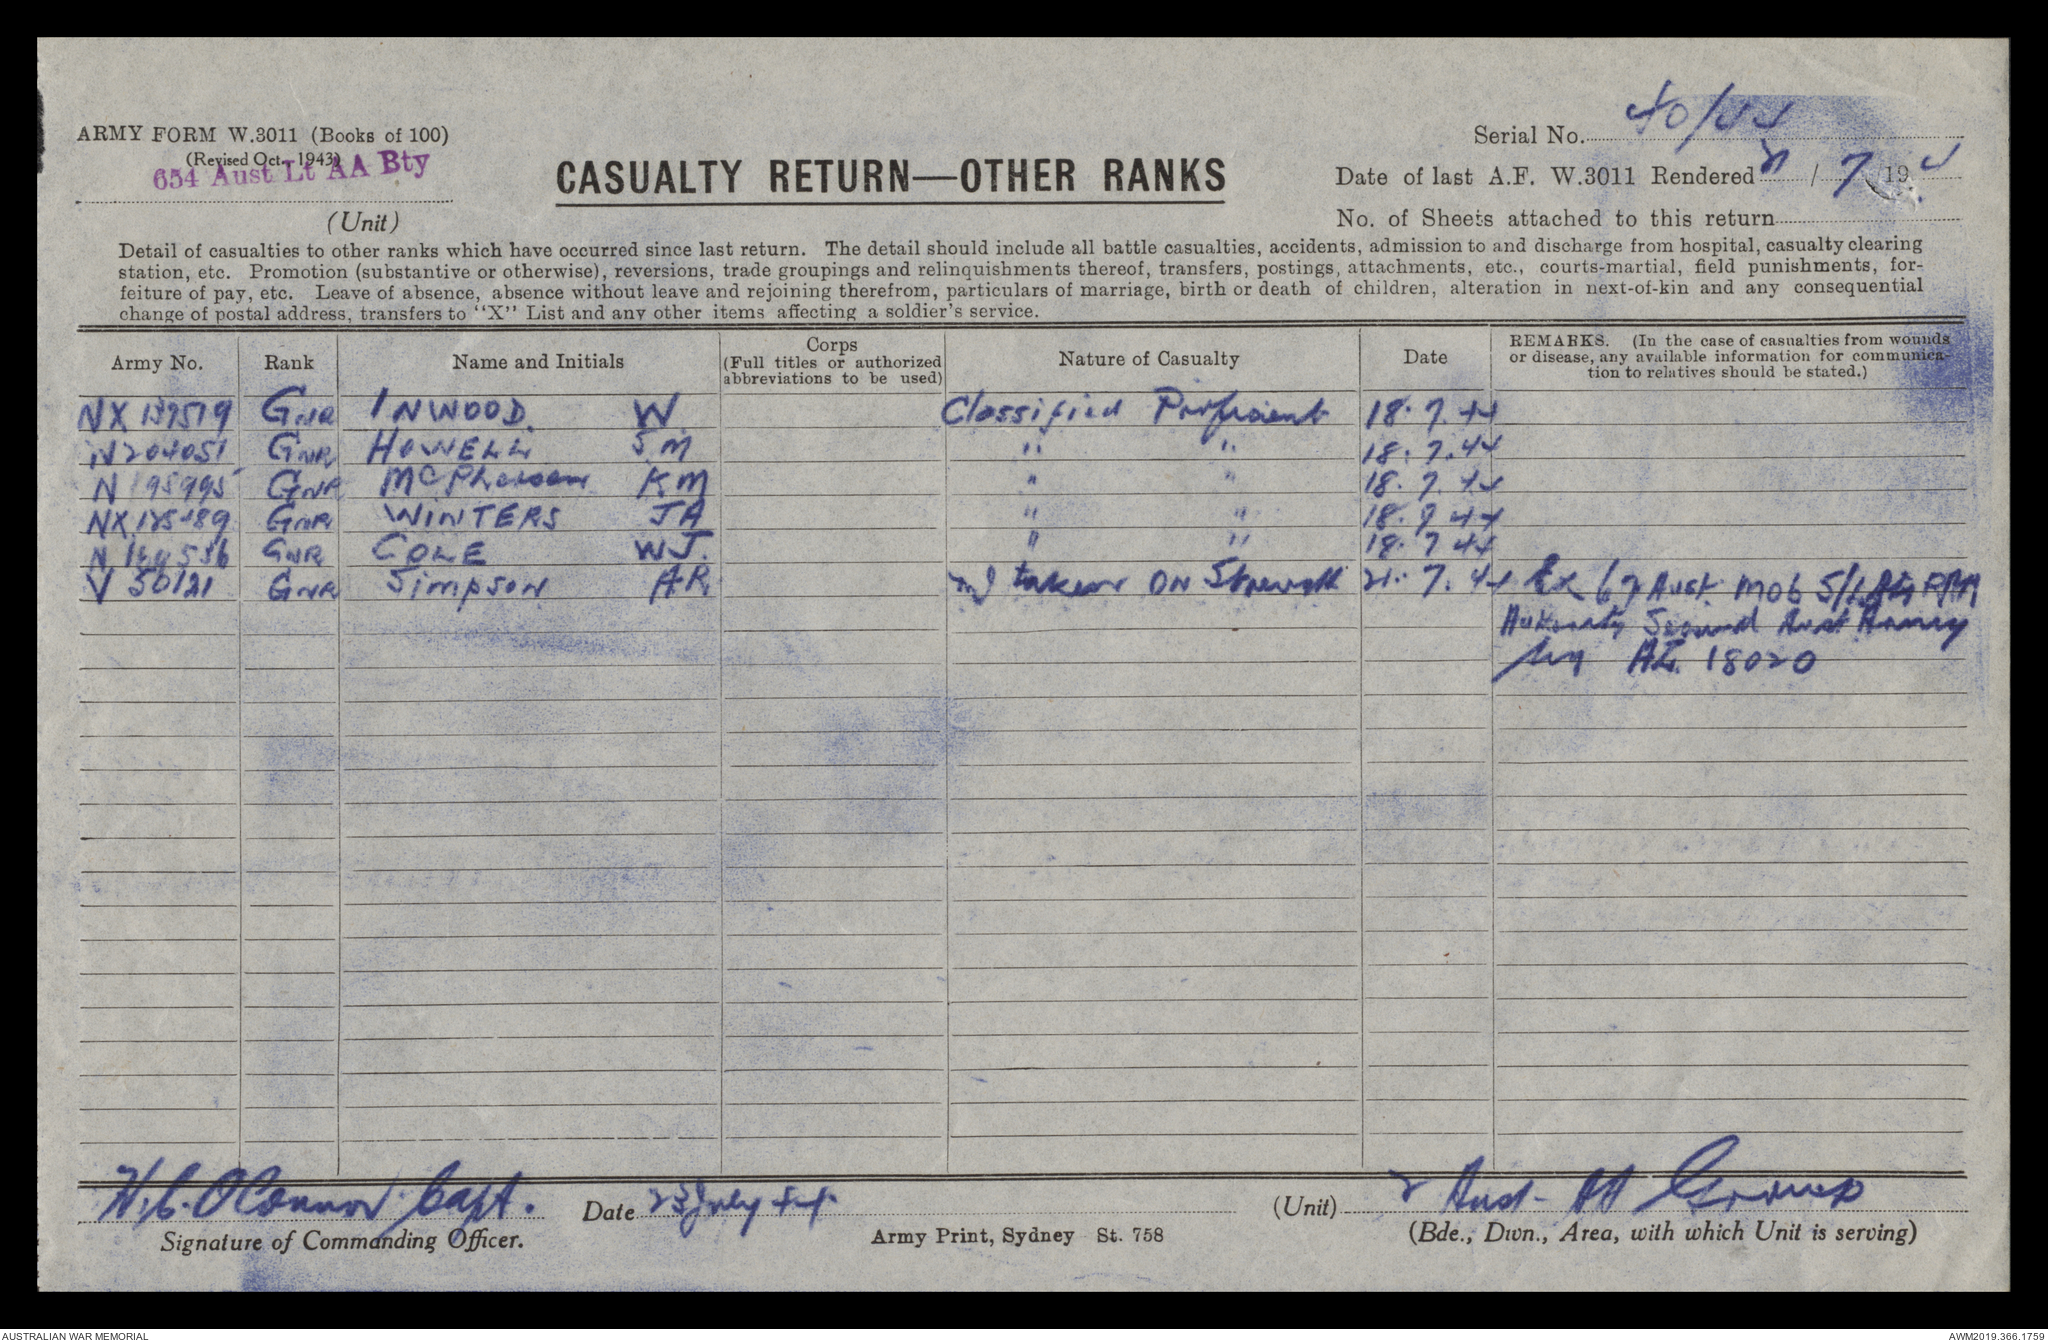 ARMY FORM W.3011 (Books of 100)
(Revised Oct. 1943)
654 Aust Lt AA Bty
(Unit)
CASUALTY RETURN—OTHER RANKS
Serial No. 40/44
Date of last A.F. W.3011 Rendered / 7 / 194
No. of Sheets attached to this return
Detail of casualties to other ranks which have occurred since last return. The detail should include all battle casualties, accidents, admission to and discharge from hospital, casualty clearing
station, etc. Promotion (substantive or otherwise), reversions, trade groupings and relinquishments thereof, transfers, postings, attachments, etc., courts-martial, field punishments, for-
feiture of pay, etc. Leave of absence, absence without leave and rejoining therefrom, particulars of marriage, birth or death of children, alteration in next-of-kin and any consequential
change of postal address, transfers to "X" List and any other items affecting a soldier's service.
Army No. Rank Name and Initials Corps (Full titles or authorized abbreviations to be used) Nature of Casualty Date REMARKS. (In the case of casualties from wounds or disease, any available information for communication to relatives should be stated.)
GNR INWOOD. W. Classified Proficient 18.7.44
N204051 GNR HOWELL S M " " 18.7.44
N195995 GNR McPherson K M " " 18.7.44
GNR WINTERS J A " " 18.7.44
GNR COLE W J. " " 18.7.44
V50121 GNR Simpson A R taken ON Strength 21.7.44 Ex 67 Aust Mob S/L Bty RAA
Authority Second Aust Army
AG 18020
H.C. O'Connor Capt. Date 23 July 44 (Unit) 2 Aust AA Group
Signature of Commanding Officer.
Army Print, Sydney St. 758
(Bde., Dwn., Area, with which Unit is serving)
AUSTRALIAN WAR MEMORIAL
AWM2019.366.1759